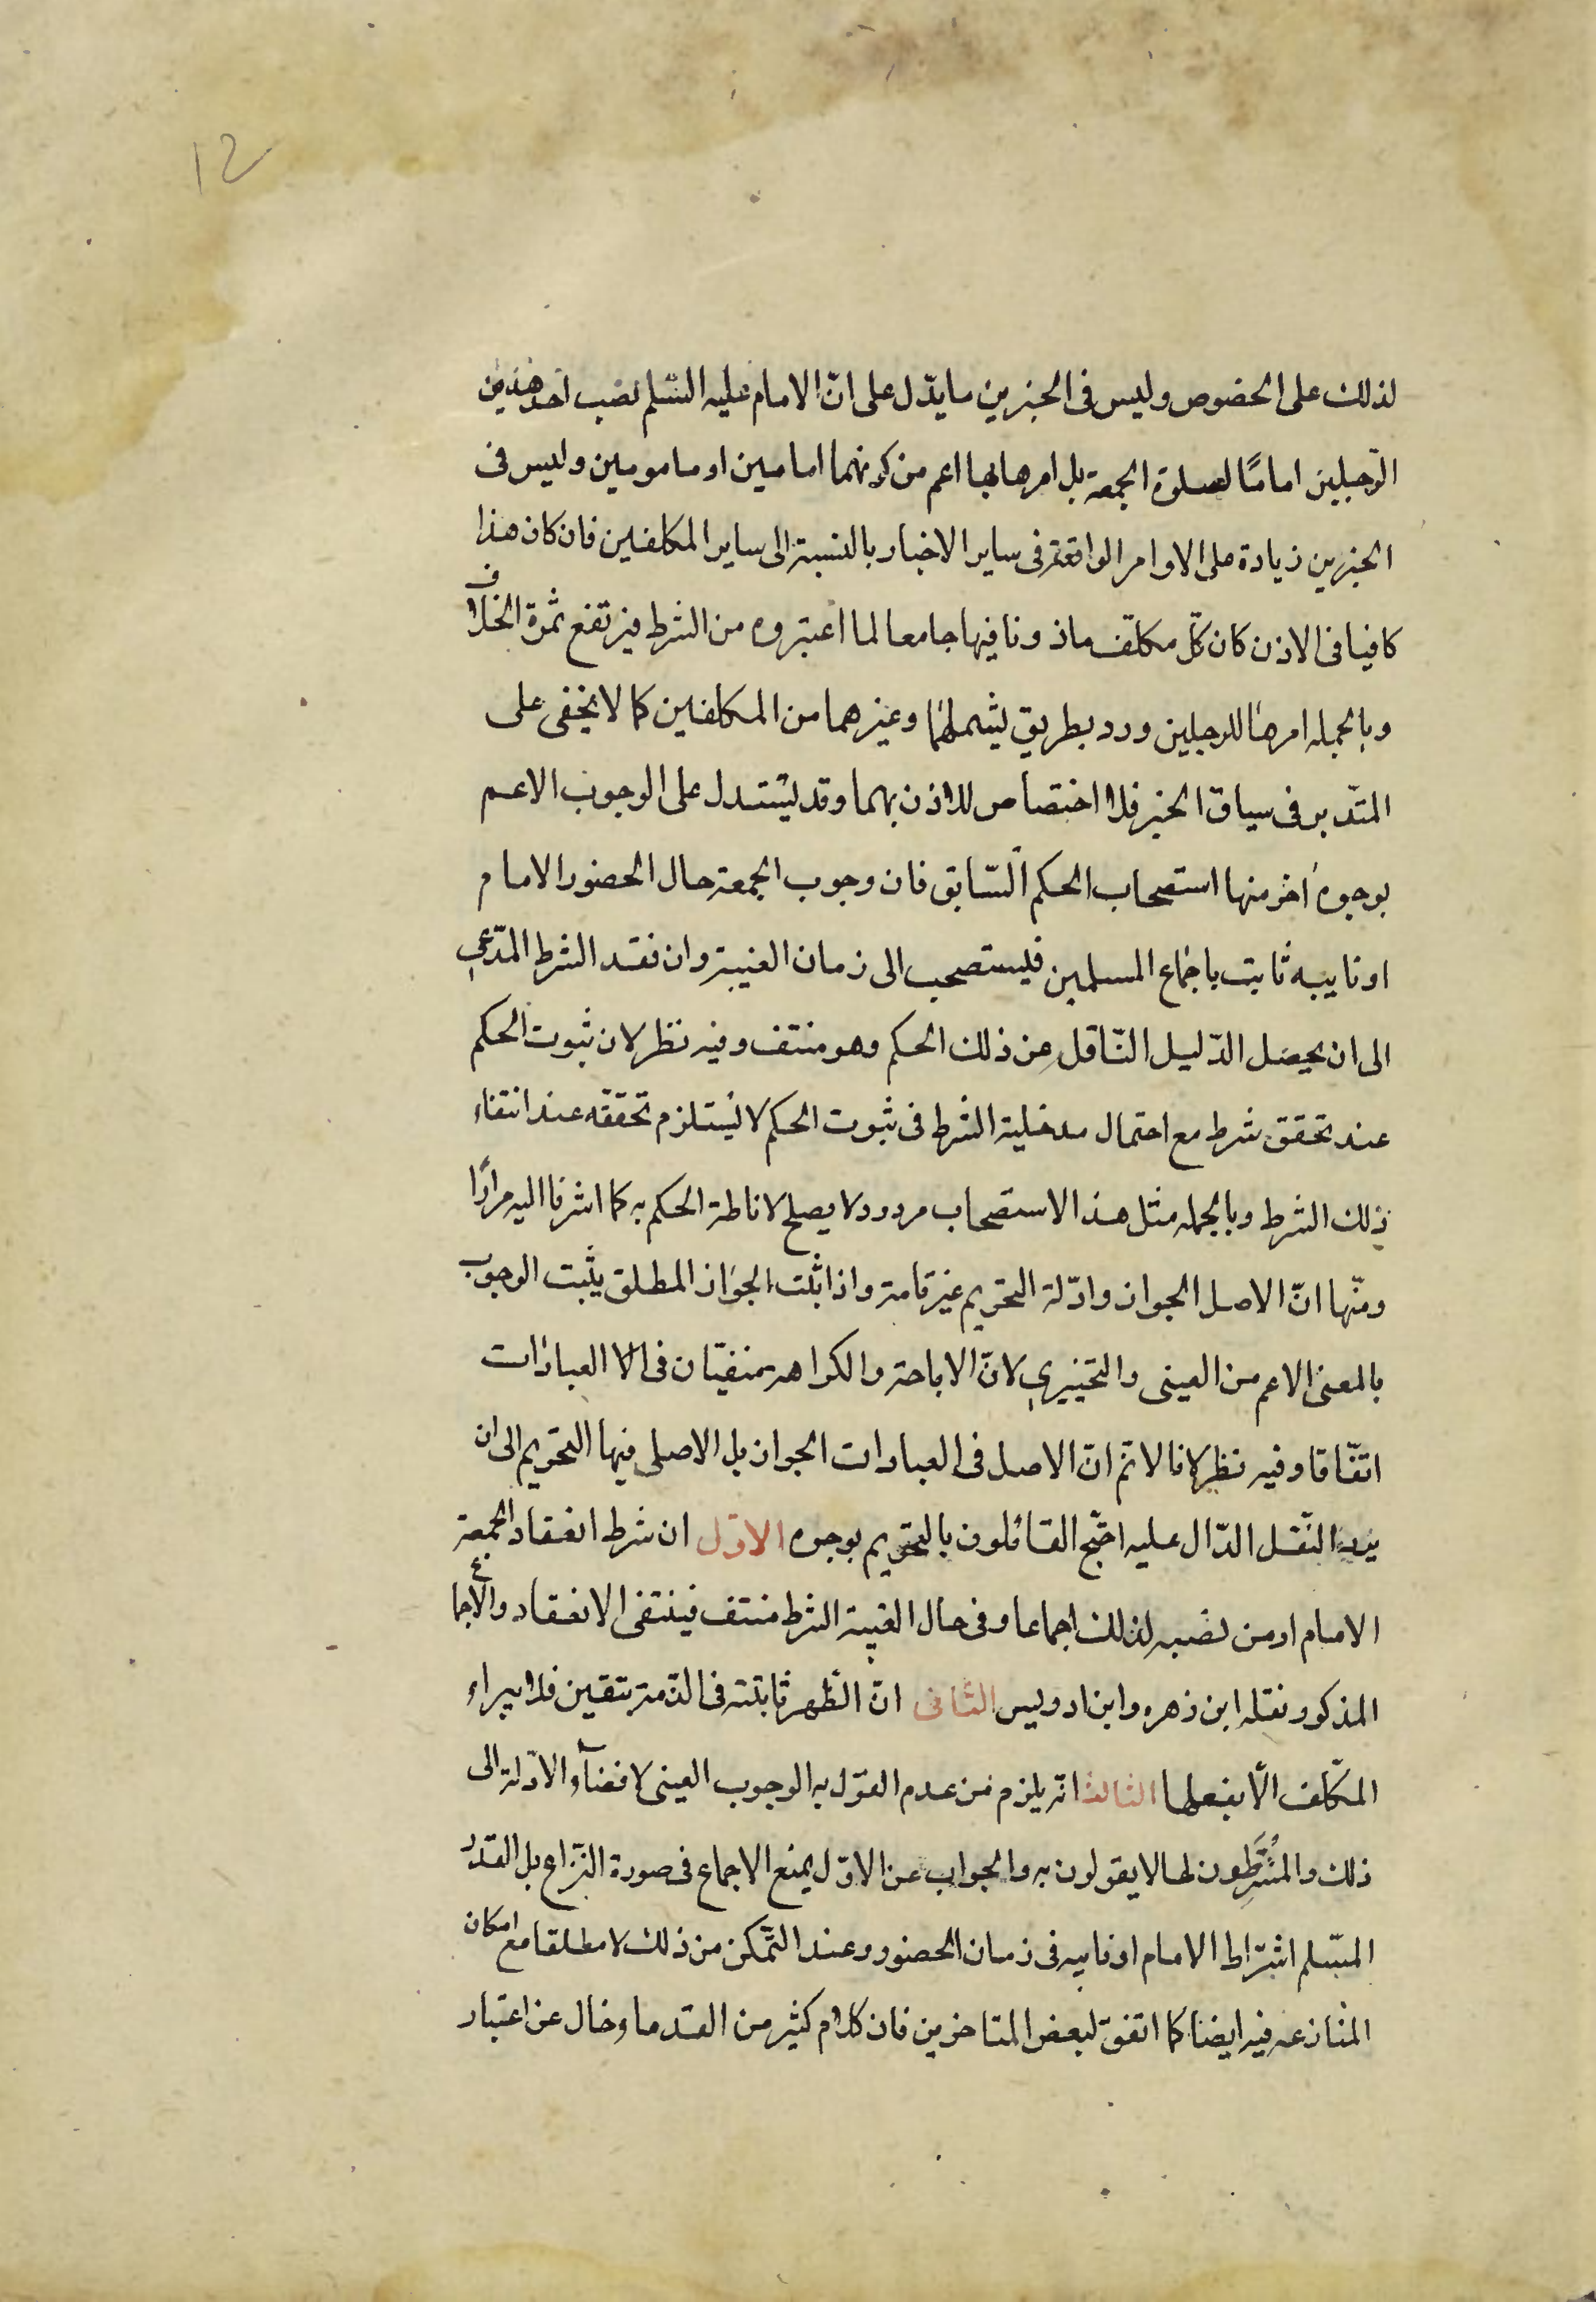 12
لذلك على الخصوص وليس فى الخبرين ما يدّل على انّ الامام عليه السّلم نصب احد هذين
الرّجلين اماما لصلوة الجمعة بل امرهما بها اعم من كونهما امامين او مامومين وليس فى
الخبرين زيادة على الاوامر الواقعة فى ساير الاخبار بالنسبة الى ساير المكلفين فان كان هذا
كافيا فى الاذن كان كلّ مكلّف ماذونا فيها جامعا لما اعتبروه من الشرط فيرتفع ثمرة الخلاف
وبالجمله امرهما للرجلين ورد بطريق يشملهما وغيرهما من المكلفين كما لا يخفى على
المتدّبر فى سياق الخبر فلا اختصاص للاذن بهما وقد يستدل على الوجوب الاعم
بوجوه اخر منها استصحاب الحكم السّابق فان وجوب الجمعة حال الحضور الامام
او نايبه ثابت باجماع المسلمين فليستصحب الى زمان الغيبة وان فقد الشرط المدّعى
الى ان يحصل الدّليل النّاقل عن ذلك الحكم وهو منتف وفيه نظر لان ثبوت الحكم
عند تحقق شرط مع احتمال مدخلية الشرط فى ثبوت الحكم لا يستلزم تحققه عند انتفاء
ذلك الشرط وبالجمله مثل هذا الاستصحاب مردود لا يصلح لاناطة الحكم به كما اشرنا اليه مرارًا
ومنها انّ الاصل الجواز وادّلة التحريم غير تامة واذا ثبت الجواز المطلق يثبت الوجوب
بالمعنى الاعم من العينى والتخييرى لانّ الاباحة والكراهة منفيّان فى الا العبادات
اتفّاقا وفيه نظر لانا لا ثم انّ الاصل فى العبادات الجواز بل الاصلى فيها التحريم الى ان
يرد النّقل الدّال عليه احتّج القائلون بالتحريم بوجوه الاوّل ان شرط انعقاد الجمعة
الامام او من نصبه لذلك اجماعا وفى حال الغيبة الشرط منتف فينتفى الانعقاد والاجماع
المذكور نقله ابن زهره وابن ادريس الثانى انّ الظهر ثابتة فى الذّمة بيقين فلا يبراء
المكلّف الّا بفعلها الثالث انه يلزم من عدم القول به الوجوب العينى لافضآء الادّلة الى
ذلك والمشترطون لها لا يقولون به والجواب عن الاوّل يمنع الاجماع فى صورة النّزاع بل القدر
المسّلم اشتراط الامام او نايبه فى زمان الحضور وعند التّمكن من ذلك لا مطلقا مع امكان
المنازعه فيه ايضا كما اتفق لبعض المتاخرين فان كلام كثير من القدماء خال عن اعتبار